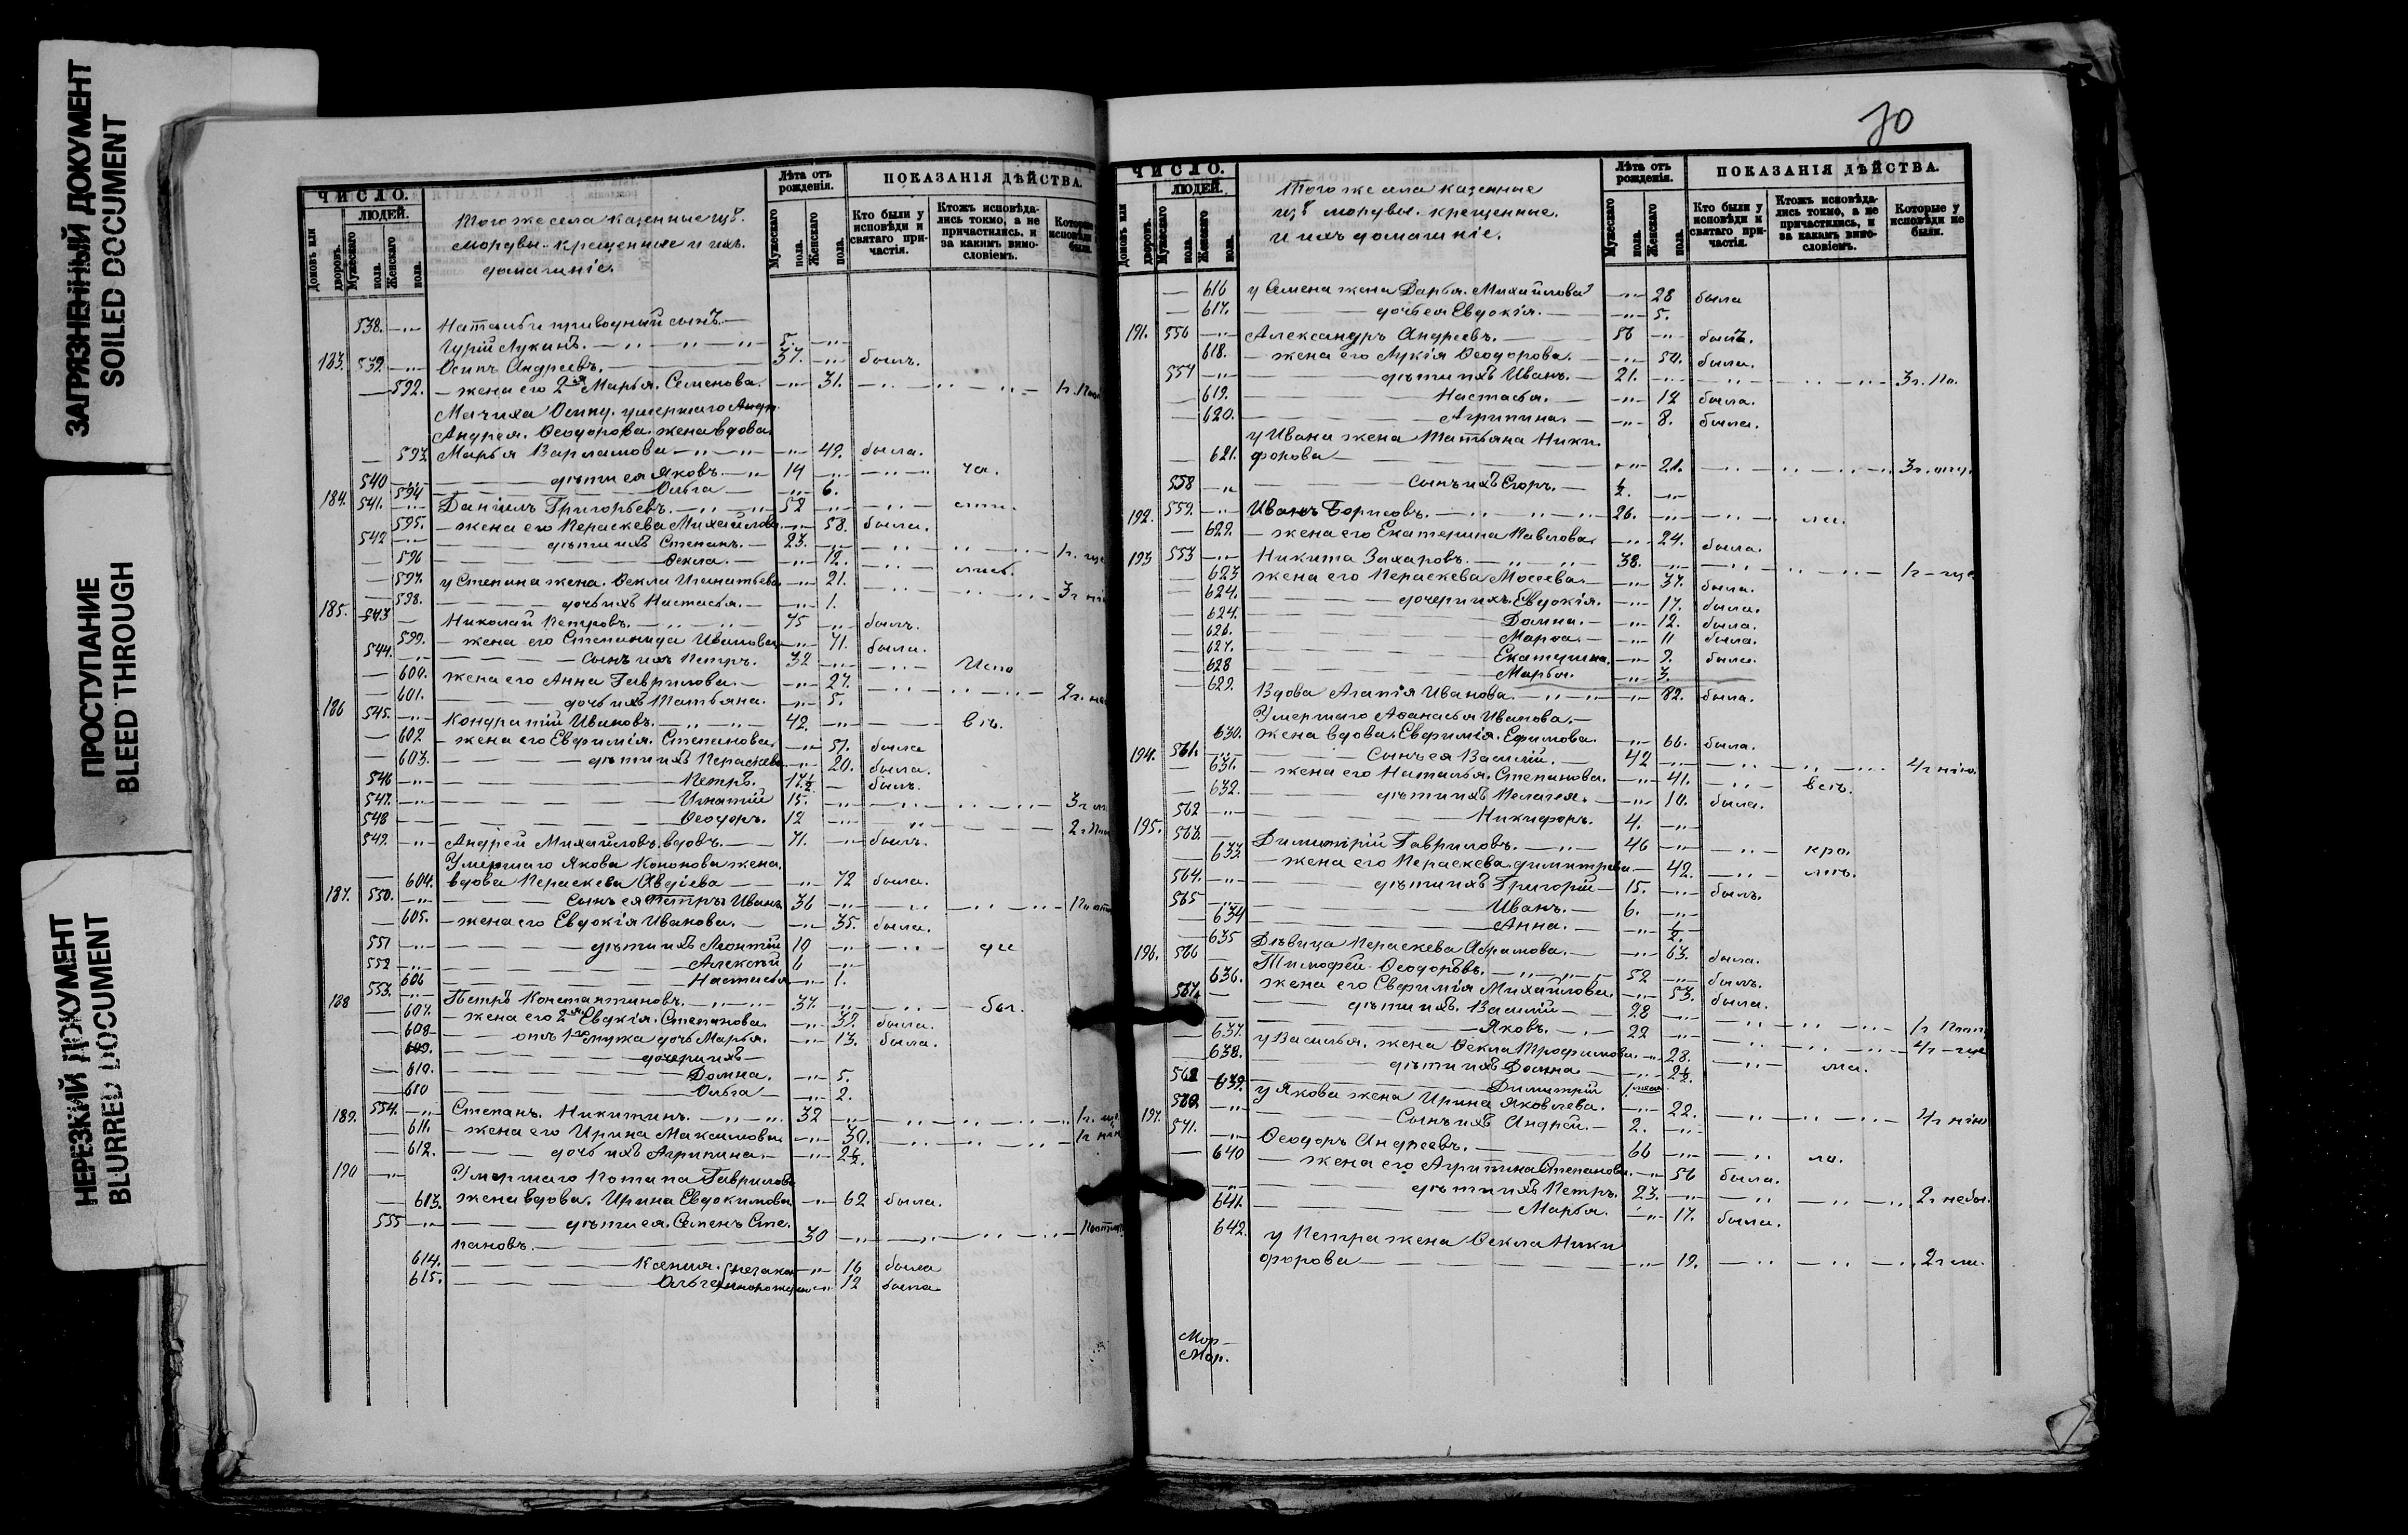 ЗАГРЯЗНЕННЫЙ ДОКУМЕНТ
SOILED DOCUMENT
ПРОСТУПАНИЕ
BLEED THROUGH
НЕРЕЗКИЙ ДОКУМЕНТ
BLURRED DOCUMENT
ЧИСЛО.
ЛЮДЕЙ.
Домовъ или дворовъ.
Мужескаго пола.
Женскаго пола.
Тогоже села казенные изъ
мордвы крещенные и ихъ
домашніе.
Лѣта отъ рожденія.
Мужескаго пола.
Женскаго пола.
ПОКАЗАНІЯ ДѢЙСТВА.
Кто были у исповѣди и святаго при-частія.
Ктожъ исповѣда-лись токмо, а не причастились, и за какимъ вино-словіемъ.
Которые исповѣди были.
538. —"— Натальи приводный сынъ —
Гурій Лукинъ. —"— 5. —"—
183. 539. —"— Осипъ Андреевъ. — 37. —"— былъ.
— 592. — жена его 2я Марья Семенова. —"— 31. —"—
Мачиха Осипу, умершаго
Андрея Ѳеодорова жена вдова
— 593. Марья Варламова —"— 49. была.
540 —"— дѣти ея Яковъ. —"— 14 —"—
— 594 Ольга — —"— 6.
184. 541. —"— Даніилъ Григорьевъ. —"— 52 —"—
595. — жена его Пераскева Михайлова —"— 58. была.
542 —"— дѣти ихъ Степанъ. — 23. —"—
— 596 Ѳекла. — —"— 12. —"—
— 597. у Степана жена Ѳекла Игнатьева —"— 21.
— 598. дочь ихъ Настасья. — —"— 1.
185. 543 — Николай Петровъ. —"— 75 —"— былъ.
599. — жена его Степанида Иванова —"— 71. была.
544. —"— сынъ ихъ Петръ. 32 —"—
— 600. жена его Анна Гаврилова. — —"— 27.
— 601. дочь ихъ Татьяна. — —"— 5.
186 545. —"— Кондратій Ивановъ. —"— 42. —"—
— 602 — жена его Евфимія Степанова. —"— 51. была
— 603. дѣти ихъ Пераскева —"— 20. была.
546 —"— Петръ. 17½ — былъ.
547. —"— Игнатій 15. —"—
548 —"— Ѳеодоръ. 12 —"—
549. —"— Андрей Михайловъ вдовъ. — 71. —"— былъ.
Умершаго Якова Кононова жена
— 604. вдова Пераскева Авдіева — —"— 72 была.
187. 550. —"— сынъ ея Петръ Иванъ 36 —"—
— 605. — жена его Евдокія Иванова. — —"— 35. была.
551 —"— дѣти ихъ Леонтій 10 —"—
552 —"— Алексѣй 6 —"—
— 606 Настасья —"— 1.
188 553. —"— Петръ Константиновъ. —"— 37. —"—
— 607. — жена его 2я Евдокія Степанова. —"— 39. была.
— 608 — отъ 1го мужа дочь Марья. —"— 13. была.
609. дочери ихъ —
— 610. Домна. —"— 5.
— 610 Ольга —"— 2.
189. 554. —"— Степанъ Никитинъ. —"— 32 —"—
— 611. — жена его Ирина Максимова —"— 30. —"—
— 612. дочь ихъ Агрипина. — —"— 2½.
190 —"— Умершаго Потапа Гаврилова
— 613. жена вдова Ирина Евдокимова —"— 62 была.
555 —"— дѣти ея Семенъ Сте-
пановъ. — 30 —"—
614. Ксенія —"— 16 была
615. Ольга —"— 12 была
70
ЧИСЛО.
ЛЮДЕЙ.
Домовъ или дворовъ.
Мужескаго пола.
Женскаго пола.
Тогоже села казенные
изъ мордвы крещенные
и ихъ домашніе.
Лѣта отъ рожденія.
Мужескаго пола.
Женскаго пола.
ПОКАЗАНІЯ ДѢЙСТВА.
Кто были у исповѣди и святаго при-частія.
Ктожъ исповѣда-лись токмо, а не причастились, и за какимъ вино-словіемъ.
Которые у исповѣди не были.
— 616 у Семена жена Дарья Михайлова —"— 28 была
— 617. дочь ея Евдокія. — —"— 5.
191. 556 —"— Александръ Андреевъ. — 56 —"— былъ.
618. — жена его Лукія Ѳеодорова. — —"— 50. была.
557 —"— дѣти ихъ Иванъ. — 21. —"—
— 619. Настасья. — —"— 12 была.
— 620. Агрипина. — —"— 8. была.
у Ивана жена Татьяна Ники-
— 621. форова — —"— 21. —"—
558 —"— сынъ ихъ Егоръ. — ½. —"—
192. 559. —"— Иванъ Борисовъ. —"— 26. —"—
— 622. — жена его Екатерина Павлова. —"— 24. была.
193 553 —"— Никита Захаровъ. —"— 38. —"—
— 623 жена его Пераскева Мосеева. — —"— 37. была.
— 624. дочери ихъ Евдокія. —"— 17. была.
— 624. Домна. — —"— 12. была.
— 626. Марѳа. — —"— 11 была.
— 627. Екатерина. —"— 9. была.
— 628 Марья. —"— 3.
— 629. Вдова Агапія Иванова. —"— 82. была.
Умершаго Аѳанасья Иванова. —
630. жена вдова Евфимія Ефимова. —"— 66. была.
194. 561. —"— сынъ ея Василій. — 42 —"—
— 631. — жена его Наталья Степанова. —"— 41. —"—
— 632. дѣти ихъ Пелагея. — —"— 10. была.
562 —"— Никифоръ. 4. —"—
195. 563. — Димитрій Гавриловъ. —"— 46 —"—
— 633. — жена его Пераскева Димитрева — 42. —"—
564. —"— дѣти ихъ Григорій — 15. —"— былъ.
565 —"— Иванъ. — 6. —"—
— 634 Анна. — —"— ½.
— 635 Дѣвица Пераскева Абрамова. — —"— 63. была.
196. 566 — Тимофей Ѳеодоровъ. —"— 52 —"— былъ.
— 636. жена его Евфимія Михайлова. —"— 53. была.
567. — дѣти ихъ Василій — 28 —"—
Яковъ. — 22 —"—
— 637. у Василья жена Ѳекла Трофимова. —"— 28.
— 638. дѣти ихъ Домна — —"— 2½.
Димитрій
639. у Якова жена Ирина Яковлева. —"— 22.
сынъ ихъ Андрей. — 2. —"—
197. 571. —"— Ѳеодоръ Андреевъ. — 66 —"—
— 640 — жена его Агрипина Степанова. —"— 56 была.
—"— дѣти ихъ Петръ. 23. —"—
641. Марья. —"— 17. была.
642. у Петра жена Ѳекла Ники-
форова — —"— 19. —"—
Мор—
Мор.